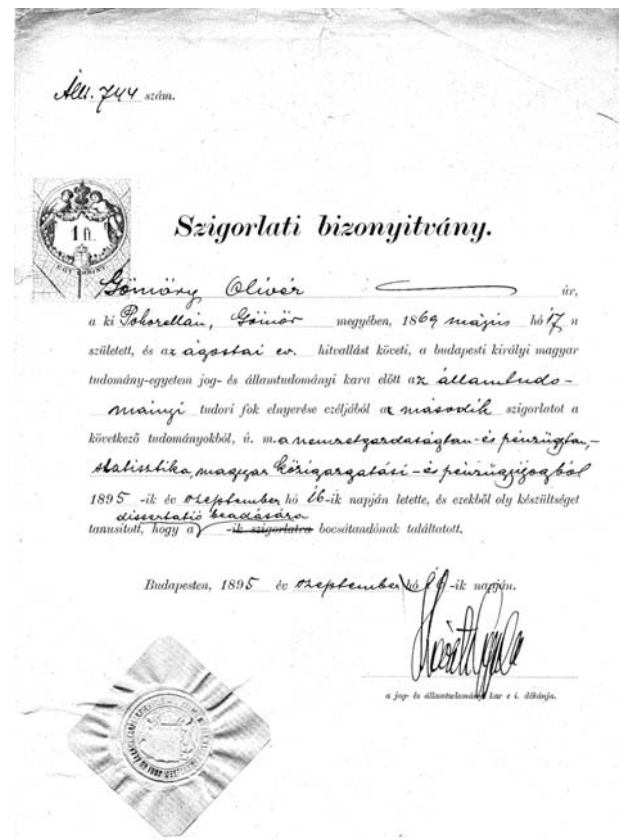 Áll. 744 szám.
1 ft.
EGY FORINT
Szigorlati bizonyitvány.
Gömöry Olivér úr,
a ki Pohorellán, Gömör megyében, 1869 május hó 17 n
született, és az ágostai ev. hitvallást követi, a budapesti királyi magyar
tudomány-egyetem jog- és államtudományi kara előtt az államtudo-
mányi tudori fok elnyerése czéljából a második szigorlatot a
következő tudományokból, ú. m. a nemzetgazdaságtan- és pénzügytan,-
statisztika, magyar közigazgatási- és pénzügyijogból
1895 -ik év szeptember hó 16-ik napján letette, és ezekből oly készültséget
dissertatió beadására
tanusított, hogy a -ik szigorlatra bocsátandónak találtatott.
Budapesten, 1895 év szeptember hó 16-ik napján.
a jog- és államtudományi kar e i. dékánja.